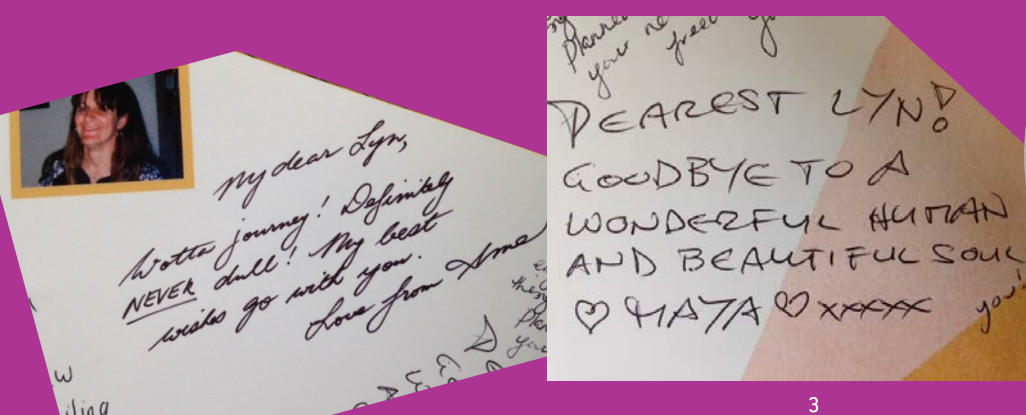 My dear Lyn,
Wotta journey! Definitely
NEVER dull! My best
wishes go with you.
Love from
your
free
DEAREST LYN!
GOODBYE TO A
WONDERFUL HUMAN
AND BEAUTIFUL SOUL
♡ MAYA ♡ xxxxx
3